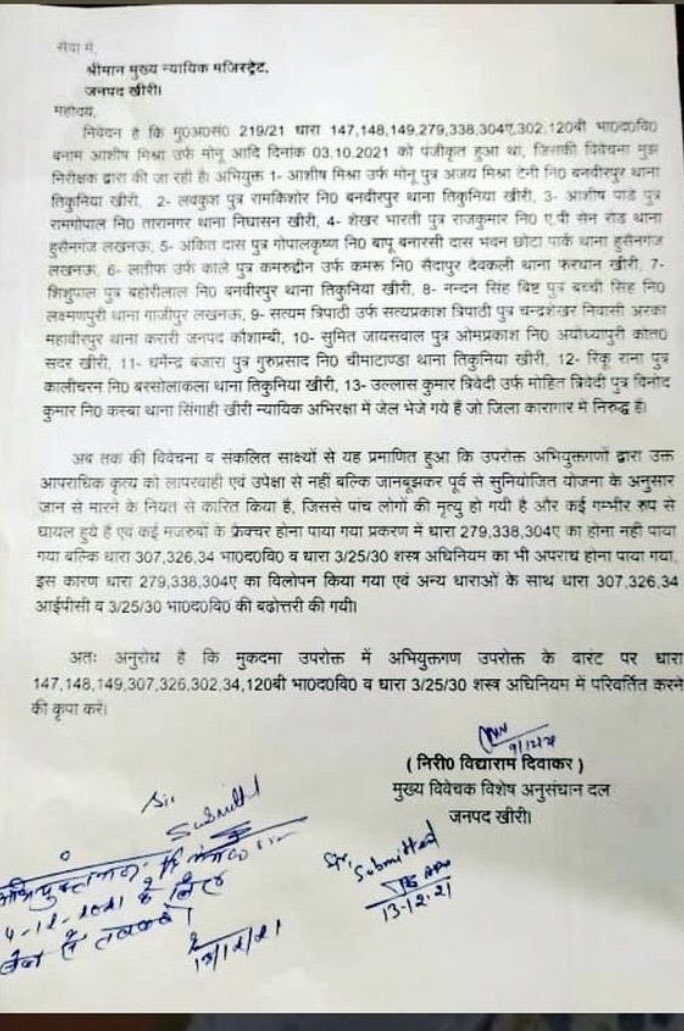 सेवा में,
श्रीमान मुख्य न्यायिक मजिस्ट्रेट,
जनपद खीरी।
महोदय,
निवेदन है कि मु0अ0सं0 219/21 धारा 147,148,149,279,338,304ए,302,120बी भा0द0वि0
बनाम आशीष मिश्रा उर्फ मोनू आदि दिनांक 03.10.2021 को पंजीकृत हुआ था, जिसकी विवेचना मुझ
निरीक्षक द्वारा की जा रही है। अभियुक्त 1- आशीष मिश्रा उर्फ मोनू पुत्र अजय मिश्रा टेनी नि0 बनवीरपुर थाना
तिकुनिया खीरी, 2- लवकुश पुत्र रामकिशोर नि0 बनवीरपुर थाना तिकुनिया खीरी, 3- आशीष पांडे पुत्र
रामगोपाल नि0 तारानगर थाना निघासन खीरी, 4- शेखर भारती पुत्र राजकुमार नि0 ए.पी सेन रोड थाना
हुसैनगंज लखनऊ, 5- अंकित दास पुत्र गोपालकृष्ण नि0 बापू बनारसी दास भवन छोटा पार्क थाना हुसैनगंज
लखनऊ, 6- लतीफ उर्फ काले पुत्र कमरुद्दीन उर्फ कमरू नि0 सैदापुर देवकली थाना फरधान खीरी, 7-
शिशुपाल पुत्र बहोरीलाल नि0 बनवीरपुर थाना तिकुनिया खीरी, 8- नन्दन सिंह बिष्ट पुत्र बच्ची सिंह नि0
लक्ष्मणपुरी थाना गाजीपुर लखनऊ, 9- सत्यम त्रिपाठी उर्फ सत्यप्रकाश त्रिपाठी पुत्र चन्द्रशेखर निवासी अरका
महावीरपुर थाना करारी जनपद कौशाम्बी, 10- सुमित जायसवाल पुत्र ओमप्रकाश नि0 अयोध्यापुरी कोत0
सदर खीरी, 11- धर्मेन्द्र बंजारा पुत्र गुरुप्रसाद नि0 चीमाटाण्डा थाना तिकुनिया खीरी, 12- रिंकू राना पुत्र
कालीचरन नि0 बरसोलाकला थाना तिकुनिया खीरी, 13- उल्लास कुमार त्रिवेदी उर्फ मोहित त्रिवेदी पुत्र विनोद
कुमार नि0 कस्बा थाना सिंगाही खीरी न्यायिक अभिरक्षा में जेल भेजे गये हैं जो जिला कारागार में निरुद्ध हैं।
अब तक की विवेचना व संकलित साक्ष्यों से यह प्रमाणित हुआ कि उपरोक्त अभियुक्तगणों द्वारा उक्त
आपराधिक कृत्य को लापरवाही एवं उपेक्षा से नहीं बल्कि जानबूझकर पूर्व से सुनियोजित योजना के अनुसार
जान से मारने के नियत से कारित किया है, जिससे पांच लोगों की मृत्यु हो गयी है और कई गम्भीर रूप से
घायल हुये हैं एवं कई मजरुबों के फ्रैक्चर होना पाया गया प्रकरण में धारा 279,338,304ए का होना नही पाया
गया बल्कि धारा 307,326,34 भा0द0वि0 व धारा 3/25/30 शस्त्र अधिनियम का भी अपराध होना पाया गया,
इस कारण धारा 279,338,304ए का विलोपन किया गया एवं अन्य धाराओं के साथ धारा 307,326,34
आईपीसी व 3/25/30 भा0द0वि0 की बढोत्तरी की गयी।
अतः अनुरोध है कि मुकदमा उपरोक्त में अभियुक्तगण उपरोक्त के वारंट पर धारा
147,148,149,307,326,302,34,120बी भा0द0वि0 व धारा 3/25/30 शस्त्र अधिनियम में परिवर्तित करने
की कृपा करें।
9/12/21
( निरी0 विद्याराम दिवाकर )
मुख्य विवेचक विशेष अनुसंधान दल
जनपद खीरी।
Sir,
Submitted
अभियुक्तगण
4-12-2021 के लिए
जेल से तलब हो।
13/12/21
Sir,
Submitted
13-12-21